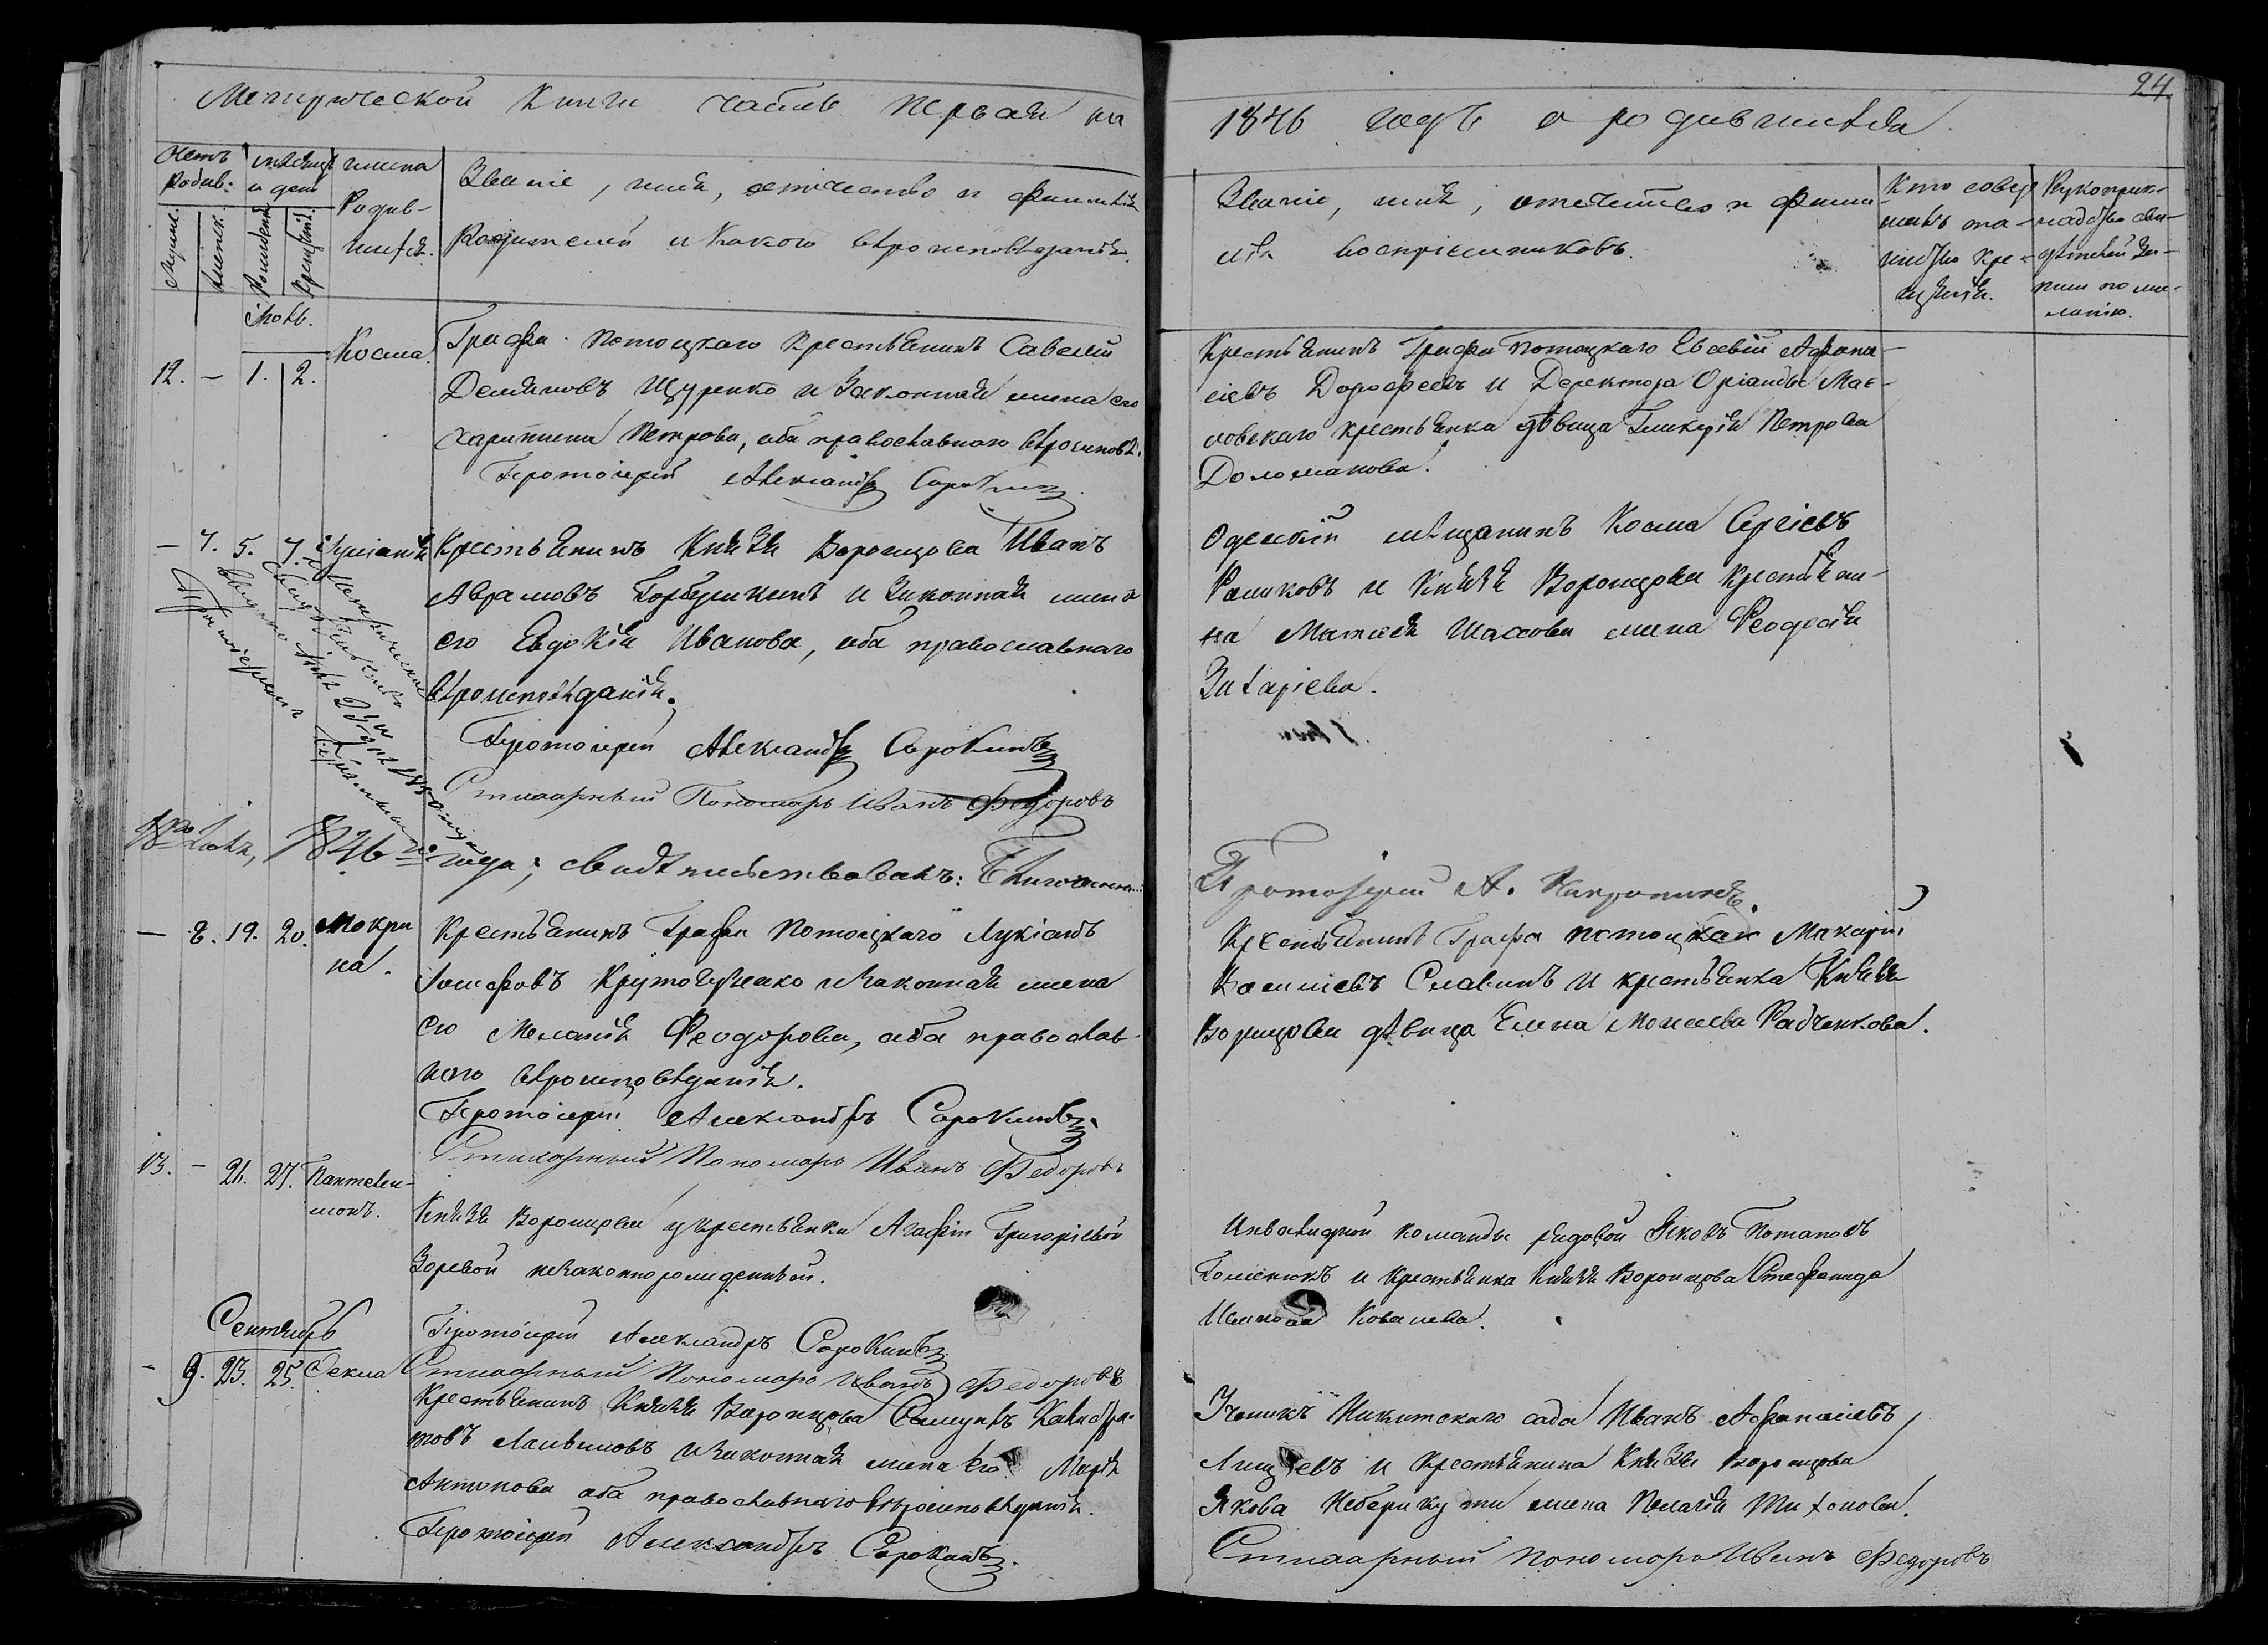 Метрической Книги часть первая на
1846 годъ о родившихся.
24.
Счетъ родив:
мѣсяцъ и день
имена Родив-
шихся.
Званіе, имя, отчество и фамилія
Родителей и какого вѣроисповѣданія.
Мужеск.
Женск.
Рожденія
Крещенія.
Званіе, имя, отечество и фами-
лія воспріемниковъ.
Кто совер-
шилъ та-
инство кре-
щенія.
Рукоприк-
ладство сви-
дѣтелей за-
писи по же-
ланію.
Іюль.
12. — 1. 2. Косма.
Графа Потоцкаго крестьянинъ Савелій
Демяновъ Щуренко и Законная жена его
Харитина Петрова, оба православнаго вѣроисповѣ.
Протоіерей Александръ Сорокинъ.
Крестьянинъ Графа Потоцкаго Евсевій Афана-
сіевъ Дорофеевъ и Деректора Оріанды Мас-
ловскаго крестьянка дѣвица Гликерія Петрова
Доломанова.
— 7. 5. 7. Іуліанія
Крестьянинъ Князя Воронцова Иванъ
Аврамовъ Горбушкинъ и Законная жена
его Евдокія Иванова, оба православнаго
вѣроисповѣданія.
Протоіерей Александръ Сорокинъ
Стихарный Пономарь Иванъ Федоровъ
Одескій мѣщанинъ Косма Сергіевъ
Рашковъ и Князя Воронцова крестьяни-
на Матвея Шахова жена Феодосія
Захаріева.
Метрическое
свидетельство
выдано
Протоіерей
1846 го года; свидѣтельствовалъ: Благочинный
Протоіерей А.
— 8. 19. 20. Мокри
на.
Крестьянинъ Графа Потоцкаго Лукіанъ
Іосифовъ и Законная жена
его Меланія Феодорова, оба православ-
наго вѣроисповѣданія.
Протоіерей Александръ Сорокинъ.
Стихарный Пономарь Иванъ Федоровъ
Крестьянинъ Графа Потоцкаго Макарій
Василіевъ Славинъ и крестьянка Князя
Воронцова дѣвица Елена Моисеева Радченкова.
13. — 21. 27. Пантелеи-
монъ.
Князя Воронцова у крестьянки Агафіи Григоріевой
Зоревой незаконнорожденный.
Протоіерей Александръ Сорокинъ
Стихарный Пономарь Иванъ Федоровъ
Инвалидной команды рядовой Яковъ Потаповъ
и Крестьянка Князя Воронцова Стефанида
Ковалева.
Сентябрь
— 9. 23. 25. Фекла
Крестьянинъ Князя Воронцова Самуилъ Калистра-
товъ и Законная жена его Марія
Антонова оба православнаго вѣроисповѣданія.
Протоіерей Александръ Сорокинъ.
Ученикъ Никитскаго сада Иванъ Афанасіевъ
и Крестьянина Князя Воронцова
Якова жена Пелагія Тихонова.
Стихарный Пономарь Иванъ Федоровъ